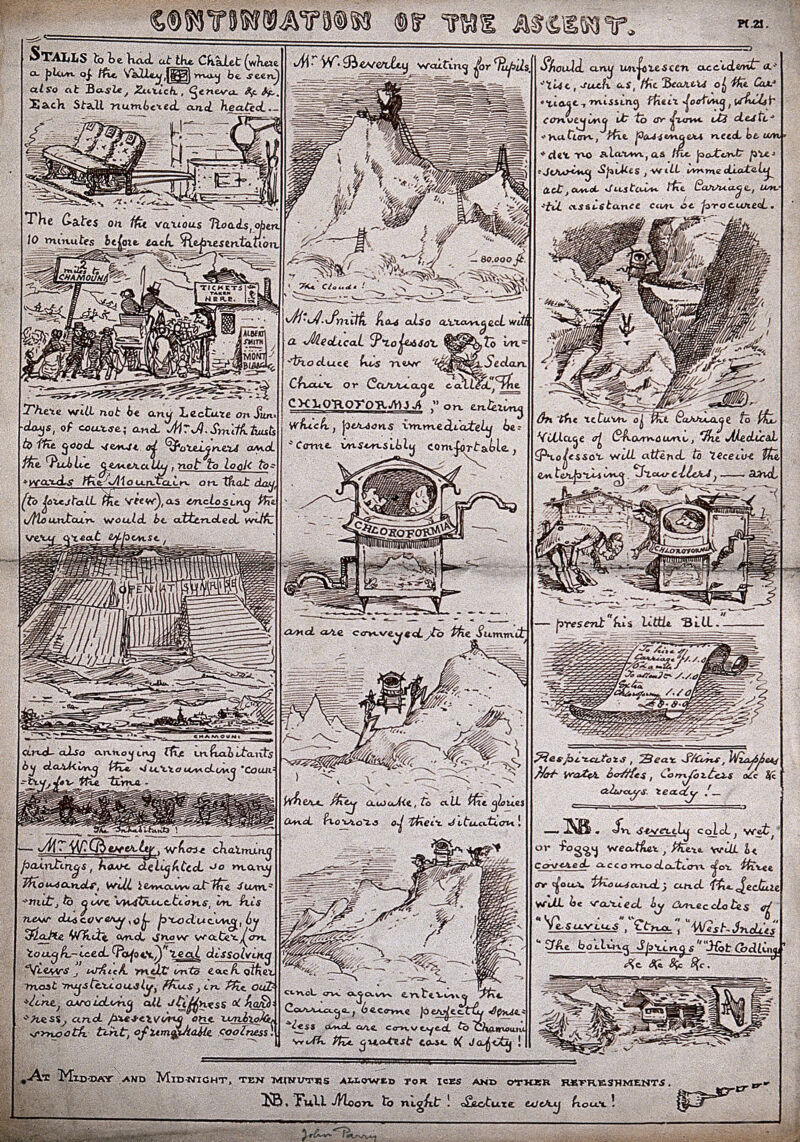 CONTINUATION OF THE ASCENT.
Pl. 21.
STALLS to be had at the Châlet (where
a plan of the Valley, may be seen)
also at Basle, Zurich, Geneva &c &c.
Each Stall numbered and heated.—
The Gates on the various Roads, open
10 minutes before each Representation
2
miles to
CHAMOUNI
TICKETS
TAKEN
HERE.
ALBERT
SMITH
MONT
BLANC
There will not be any Lecture on Sun=
days, of course; and Mr. A. Smith trusts
to the good sense of Foreigners and
the Public generally, not to look to=
=wards the Mountain on that day,
(to forestall the view), as enclosing the
Mountain would be attended with
very great expense,
OPEN AT SUNRISE
CHAMOUNI
and also annoying the inhabitants
by darking the surrounding coun=
=try, for the time.
The Inhabitants!
— Mr. W. Beverley, whose charming
paintings, have delighted so many
thousands, will remain at the sum=
=mit, to give instructions, in his
new discovery, of producing, by
Flake White and snow water, (on
rough-iced Paper,) "real dissolving
Views", which melt into each other
most mysteriously, thus, in the out=
=line, avoiding all stiffness & hard=
=ness, and preserving one unbroken
smooth tint, of remarkable coolness!
Mr. W. Beverley waiting for Pupils,
80,000 ft.
The Clouds!
Mr. A. Smith has also arranged with
a Medical Professor to in=
=troduce his new Sedan
Chair or Carriage called, "The
CHLOROFORMIA," on entering
which, persons immediately be=
=come insensibly comfortable,
CHLOROFORMIA
and are conveyed to the Summit,
where they awake, to all the glories
and horrors of their situation!
and on again entering the
Carriage, become perfectly sense=
=less and are conveyed to Chamouni
with the greatest ease & safety!
Should any unforeseen accident a=
=rise, such as, the Bearers of the Car=
=riage, missing their footing, whilst
conveying it to or from its desti=
=nation, the passengers need be un=
=der no alarm, as the patent pre=
=serving Spikes, will immediately
act, and sustain the Carriage, un=
=til assistance can be procured.
On the return of the Carriage to the
Village of Chamouni, The Medical
Professor will attend to receive the
enterprising Travellers, — and
CHLOROFORMIA
— present "his little Bill." —
To hire of
Carriage £1.1.0
To attend 1.1.0
Extra
Chloroform 1.1.0
Respirators, Bear Skins, Wrappers
Hot water bottles, Comforters &c &c
always ready! —
— NB. In severely cold, wet,
or foggy weather, there will be
covered accomodation for three
or four thousand; and the Lecture
will be varied by anecdotes of
"Vesuvius", "Etna", "West-Indies"
"The boiling Springs" "Hot Codlings"
&c &c &c &c.
AT MID-DAY AND MID-NIGHT, TEN MINUTES ALLOWED FOR ICES AND OTHER REFRESHMENTS.
NB. Full Moon to night! Lecture every hour!
John Parry